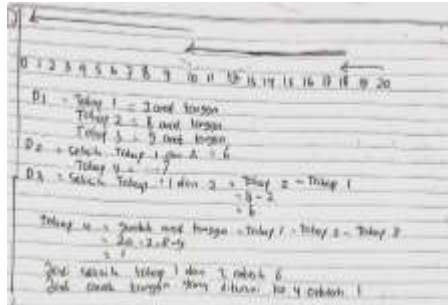 0 1 2 3 4 5 6 7 8 9 10 11 12 13 14 15 16 17 18 19 20
D1 = Tahap 1 = 2 anak tangga
Tahap 2 = 8 anak tangga
Tahap 3 = 9 anak tangga
D2 = Selisih Tahap 1 dan 2 = 6
Tahap 4 = ...?
D3 = Selisih Tahap 1 dan 2 = Tahap 2 - Tahap 1
= 8 - 2
= 6
Tahap 4 = Jumlah anak tangga - Tahap 1 - Tahap 2 - Tahap 3
= 20 - 2 - 8 - 9
= 1
Jadi selisih tahap 1 dan 2 adalah 6
Jadi anak tangga yang dituruni ke 4 adalah 1